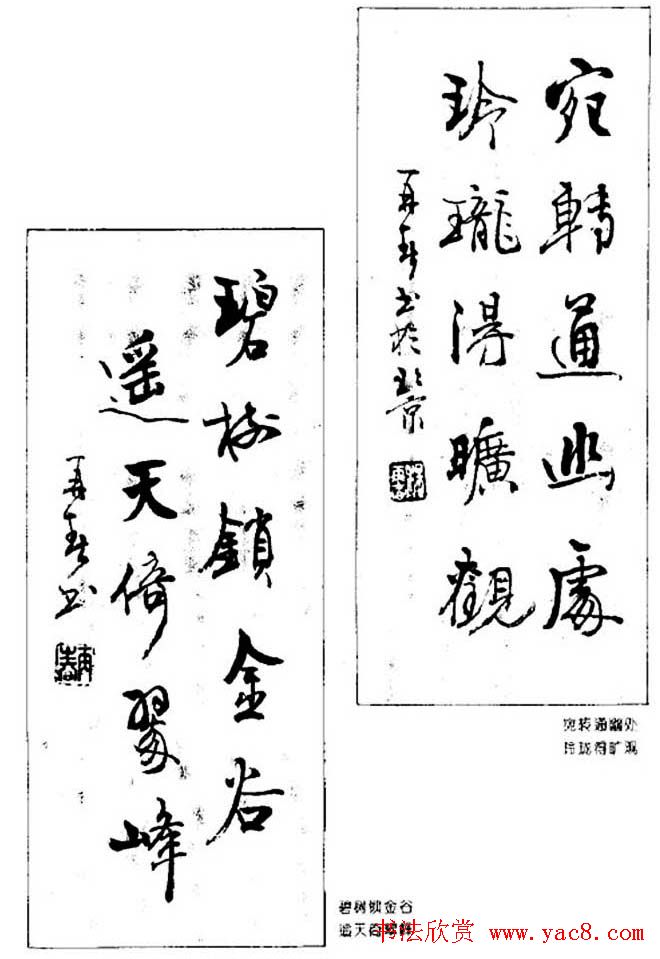 宛轉通幽處
玲瓏得曠觀
再春书於北京
宛转通幽处
玲珑得旷观
碧樹鎖金谷
遥天倚翠峰
再春书
再春
碧树锁金谷
遥天倚翠峰
书法欣赏 www.yac8.com